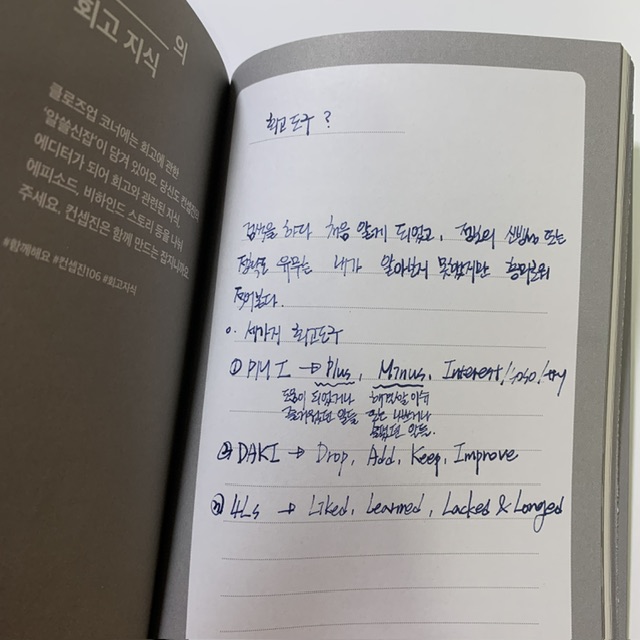 의
회고 지식
클로즈업 코너에는 회고에 관한
'알쓸신잡'이 담겨 있어요. 당신도 컨셉진의
에디터가 되어 회고와 관련된 지식,
에피소드, 비하인드 스토리 등을 나눠
주세요. 컨셉진은 함께 만드는 잡지니까요.
#함께해요 #컨셉진106 #회고지식
회고도구?
검색을 하다 처음 알게 되었고, 정보의 신빙성 또는
정확도 유무는 내가 알아보지 못했지만 흥미로워
적어본다.
o. 세가지 회고도구
① PMI → Plus, Minus, Interest/
도움이 되었거나
즐거웠던 일들
해결할 이슈
또는 나빴거나
힘들었던 일들.
② DAKI → Drop, Add, Keep, Improve
③ 4Ls → Liked, Learned, Lacked & Longed